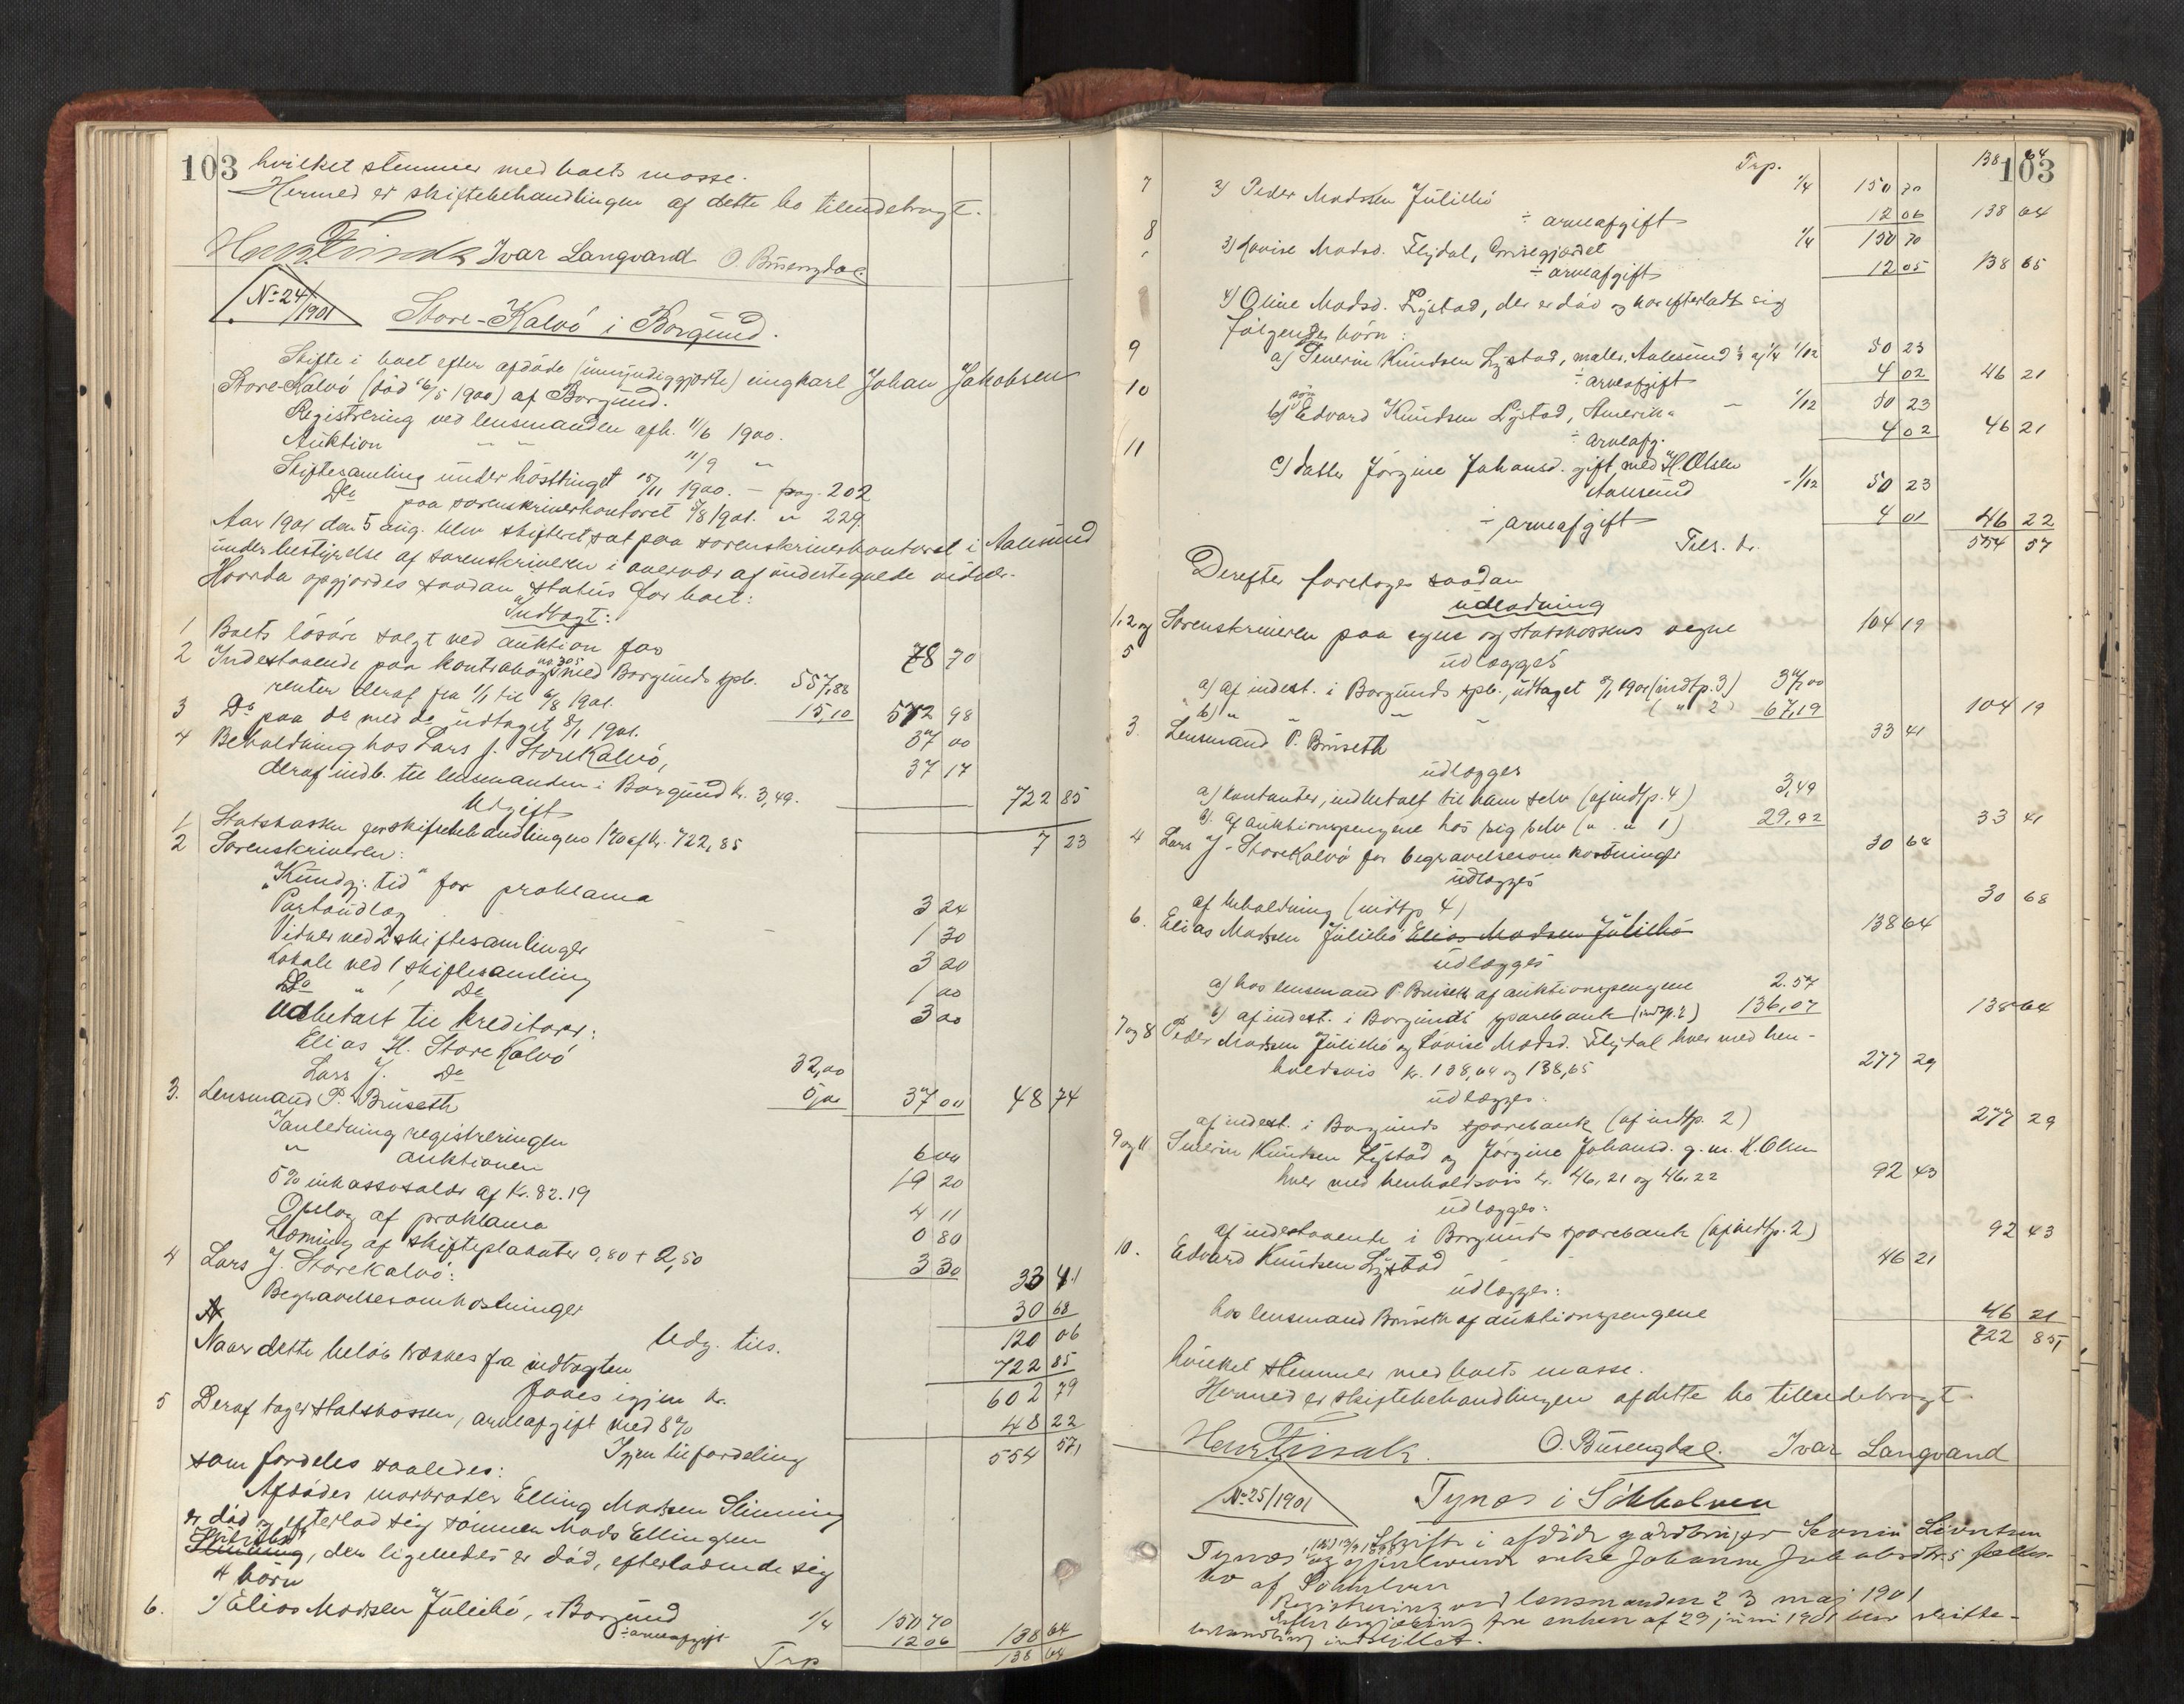 103
hvilket stemmer med boets masse.
Hermed er skiftebehandlingen af dette bo tilendebragt.
Ivar Langvand O. Busengdal
No 24/1901
Store-Kalvö i Borgund.
Skifte i boet efter afdöde (umyndiggjorte) ungkarl Johan Jakobsen
Store-Kalvö (död 16/5 1900) af Borgund.
Registrering ved lensmanden afh. 11/6 1900.
Auktion " " 11/9 "
Skiftesamling under hösttinget 15/11 1900. – pag. 202
Do paa sorenskriverkontoret 5/8 1901. " 229.
Aar 1901 den 5 aug. blev skifteret sat paa sorenskriverkontoret i Aalesund
under bestyrelse af sorenskriveren i overvær af undertegnede vidner.
Hvorda opgjordes saadan status for boet:
Indtægt:
1 Boets lösöre solgt ved auktion for 78 70
2 Indestaaende paa kontrabog no 305 med Borgunds spb. 557,88
renter deraf fra 1/1 til 6/8 1901. 15,10 572 98
3 Do paa do med do, udtaget 8/1 1901. 37 00
4 Beholdning hos Lars J. StoreKalvö, 37 17
deraf indb. til lensmanden i Borgund kr. 3,49. 722 85
Udgift
1 Statskassen for skiftebehandlingen 1% af kr. 722,85 7 23
2 Sorenskriveren:
"Kundgj. tid" for proklama 3 24
Portoudlæg 1 30
Vidner ved 2 skiftesamlinger 3 20
Lokale ved 1 skiftesamling 1 00
Do " 1 Do 3 00
Udbetalt til kreditorer:
Elias H. StoreKalvö 32,00
Lars J. Do 5,00 37 00 48 74
3. Lensmand P. Buseth
I anledning registreringen 6 00
" auktionen 19 20
5% inkassosalær af kr. 82.19 4 11
Opslag af proklama 0 80
Læsning af skifteplakater 0,80 + 2,50 3 30 33 41
4 Lars J. StoreKalvö:
Begravelsesomkostninger 30 68
Udg. tils. 120 06
Naar dette belöb trækkes fra indtægten 722 85
faaes igjen kr. 602 79
5 Deraf tager statskassen, arveafgift med 8% 48 22
Igjen til fordeling 554 57
som fordeles saaledes:
Afdödes morbroder Elling Madsen Slinning
er död og efterlod sig sönnen Mads Ellingsen
Slinning, der ligeledes er död, efterladende sig
4 börn
6. 1) Elias Madsen Juliebö, i Borgund 1/4 150 70
÷ arveafgift 12 06 138 64
Trp 138 64
Trp. 138 64
103
7 2) Peder Madssen Juliebö 1/4 150 70
÷ arveafgift 12 06 138 64
8 3) Lovise Madsd. Flydal, Grisegjærdet 1/4 150 70
÷ arveafgift 12 05 138 65
4) Oline Madsd. Lystad, der er död og har efterladt sig
fölgende börn:
9 a) Severin Knudsen Lystad, maler, Aalesund 1/3 af 1/4 1/12 50 23
÷ arveafgift 4 02 46 21
10 b) sön Edvard Knudsen Lystad, Amerika – 1/12 50 23
÷ arveafg. 4 02 46 21
11 c) datter Jörgine Johansd. gift med H. Olsen
Aalesund – 1/12 50 23
÷ arveafgift 4 01 46 22
Tils. kr. 554 57
Derefter foretoges saadan
udlodning
1, 2 og 5 Sorenskriveren paa egne og statskassens vegne 104 19
udlægges
a) af indest. i Borgunds spb., udtaget 8/1 1901 (indtp. 3) 37,00
b) " " " " ( " 2) 67,19 104 19
3. Lensmand P. Buseth 33 41
udlægges
a) kontanter, indbetalt til ham selv (af indtp. 4) 3,49
b. af auktionspengene hos sig selv ( " " 1) 29,92 33 41
4 Lars J. StoreKalvö for begravelsesomkostninger 30 68
udlægges
af beholdning (indtp 4) 30 68
6. Elias Madsen Juliebö Elias Madsen Juliebö 138 64
udlægges
a) hos lensmand P. Buseth af auktionspengene 2.57
b) af indest. i Borgunds sparebank (indtp. 2) 136,07 138 64
7 og 8 Peder Madsen Juliebö og Lovise Madsd. Flydal hver med hen-
holdsvis kr. 138,64 og 138,65 277 29
udlægges:
af indest. i Borgunds sparebank (af indtp. 2) 277 29
9 og 11 Severin Knudsen Lystad og Jörgine Johansd. g. m. H. Olsen
hver med henholdsvis kr. 46,21 og 46,22 92 43
udlægges:
af indestaaende i Borgunds sparebank (af indtp. 2) 92 43
10. Edvard Knudsen Lystad 46 21
udlægges:
hos lensmand Buseth af auktionspengene 46 21
722 85
hvilket stemmer med boets masse.
Hermed er skiftebehandlingen af dette bo tilendebragt.
O. Busengdal. Ivar Langvand
No 25/1901
Tynes i Sökkelven
Skifte i afdöde gaardbruger Severin Sivertsen
Tynes og gjenlevende enke Johanne Jakobsdtrs fælles-
bo af Sökkelven
Registrering ved lensmanden 23 maj 1901
Efter begjæring fra enken af 29 juni 1901 blev skifte-
behandling indstillet.